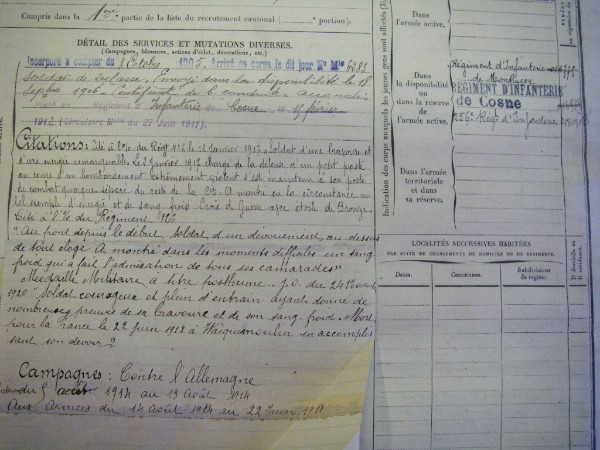 Compris dans la 1ère partie de la liste du recrutement cantonal ( portion).
DÉTAIL DES SERVICES ET MUTATIONS DIVERSES.
(Campagnes, blessures, actions d'éclat, décorations, etc.)
Incorporé à compter du 8 Octobre 1905. Arrivé au corps le dit jour No Mle 6383
soldat de 2e classe. Envoyé dans la disponibilité le 18
Septbre 1906. Certificat de bonne conduite accordé
Infanterie de Cosne le 15 février
1912 (Circulaire du 22 Juin 1911)
Citations: Cité à l'o/o du Régt le 12 Janvier 1917 "soldat d'une bravoure et
d'une énergie remarquables. Le 2 Janvier 1917 chargé de la défense d'un petit poste
au cours d'un bombardement extrêmement violent s'est maintenu à son poste
de combat quoique séparé du reste de la Cie. A montré en la circonstance un
bel exemple d'énergie et de sang froid. Croix de Guerre avec étoile de Bronze.
Cité à l'o/o du Régiment
"Au front depuis le début. Soldat d'un dévouement au-dessus
de tout éloge. A montré dans les moments difficiles un sang
froid qui a fait l'admiration de tous ses camarades"
Médaille Militaire à titre posthume. J.O. du 24
1920. "Soldat courageux et plein d'entrain ayant donné de
nombreuses preuves de sa bravoure et de son sang froid. Mort
pour la France le 22 Juin 1918 à Wacquemoulin en accomplis
sant son devoir"
Campagnes: Contre l'Allemagne
du 5 août 1914 au 13 Août 1914
Aux Armées du 14 Août 1914 au 22 Juin 1918
Indication des corps auxquels les jeunes gens sont affectés (3).
Dans
l'armée active.
Dans
la disponibilité
ou dans
la réserve
de l'armée active.
Régiment d'Infanterie
RÉGIMENT D'INFANTERIE
de Cosne
256e Régt d'Infanterie
Dans l'armée
territoriale
et dans
sa réserve.
LOCALITÉS SUCCESSIVES HABITÉES
PAR SUITE DE CHANGEMENTS DE DOMICILE OU DE RÉSIDENCE.
Dates.
Communes.
Subdivisions
de région.
D domicile ou
R résidence.